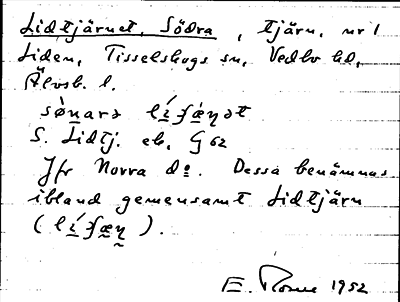 Lidtjärnet, Södra, tjärn, nr 1
Liden, Tisselskogs sn, Vedbo hd,
Älvsb. l.
S. Lidtj. ek, G 62
Jfr Norra do. Dessa benämnas
ibland gemensamt Lidtjärn
E. 1952